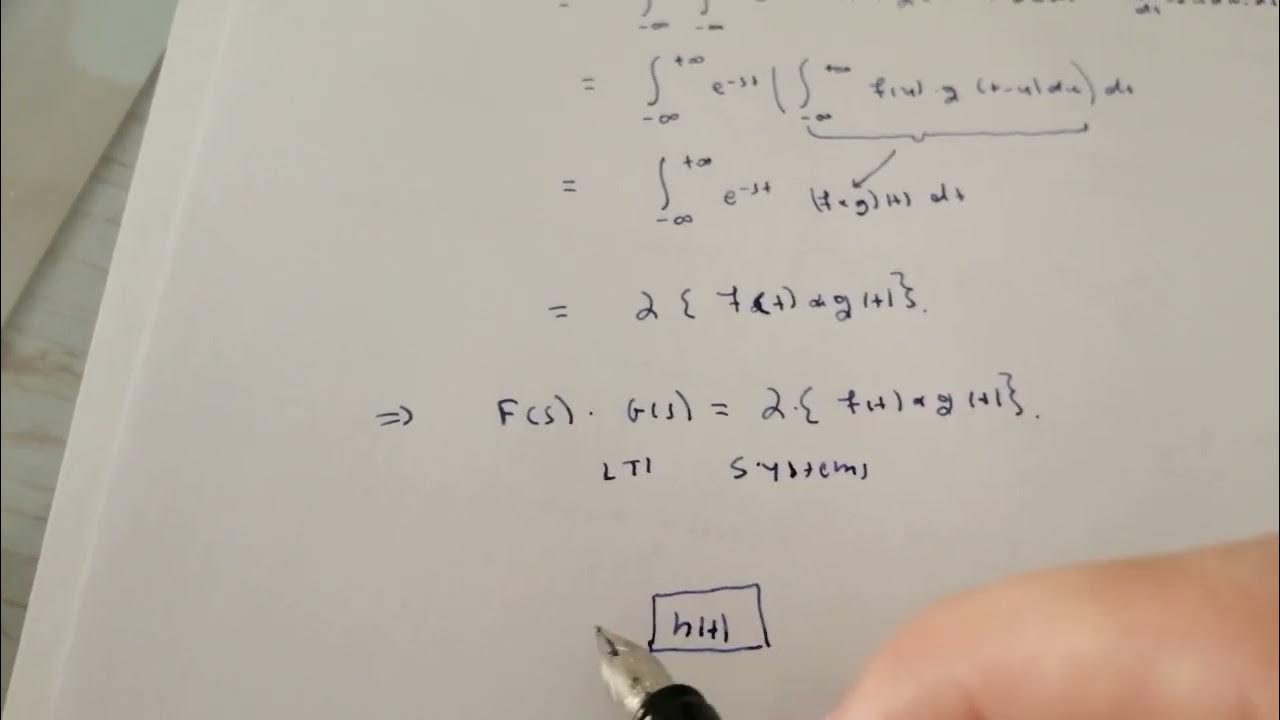 = ∫_{-∞}^{+∞} e^{-st} ( ∫_{-∞}^{+∞} f(u) · g (t-u) du ) dt
= ∫_{-∞}^{+∞} e^{-st} (f * g)(t) dt
= ℒ { f(t) * g(t) }.
=> F(s) · G(s) = ℒ { f(t) * g(t) }.
LTI Systems
h(t)